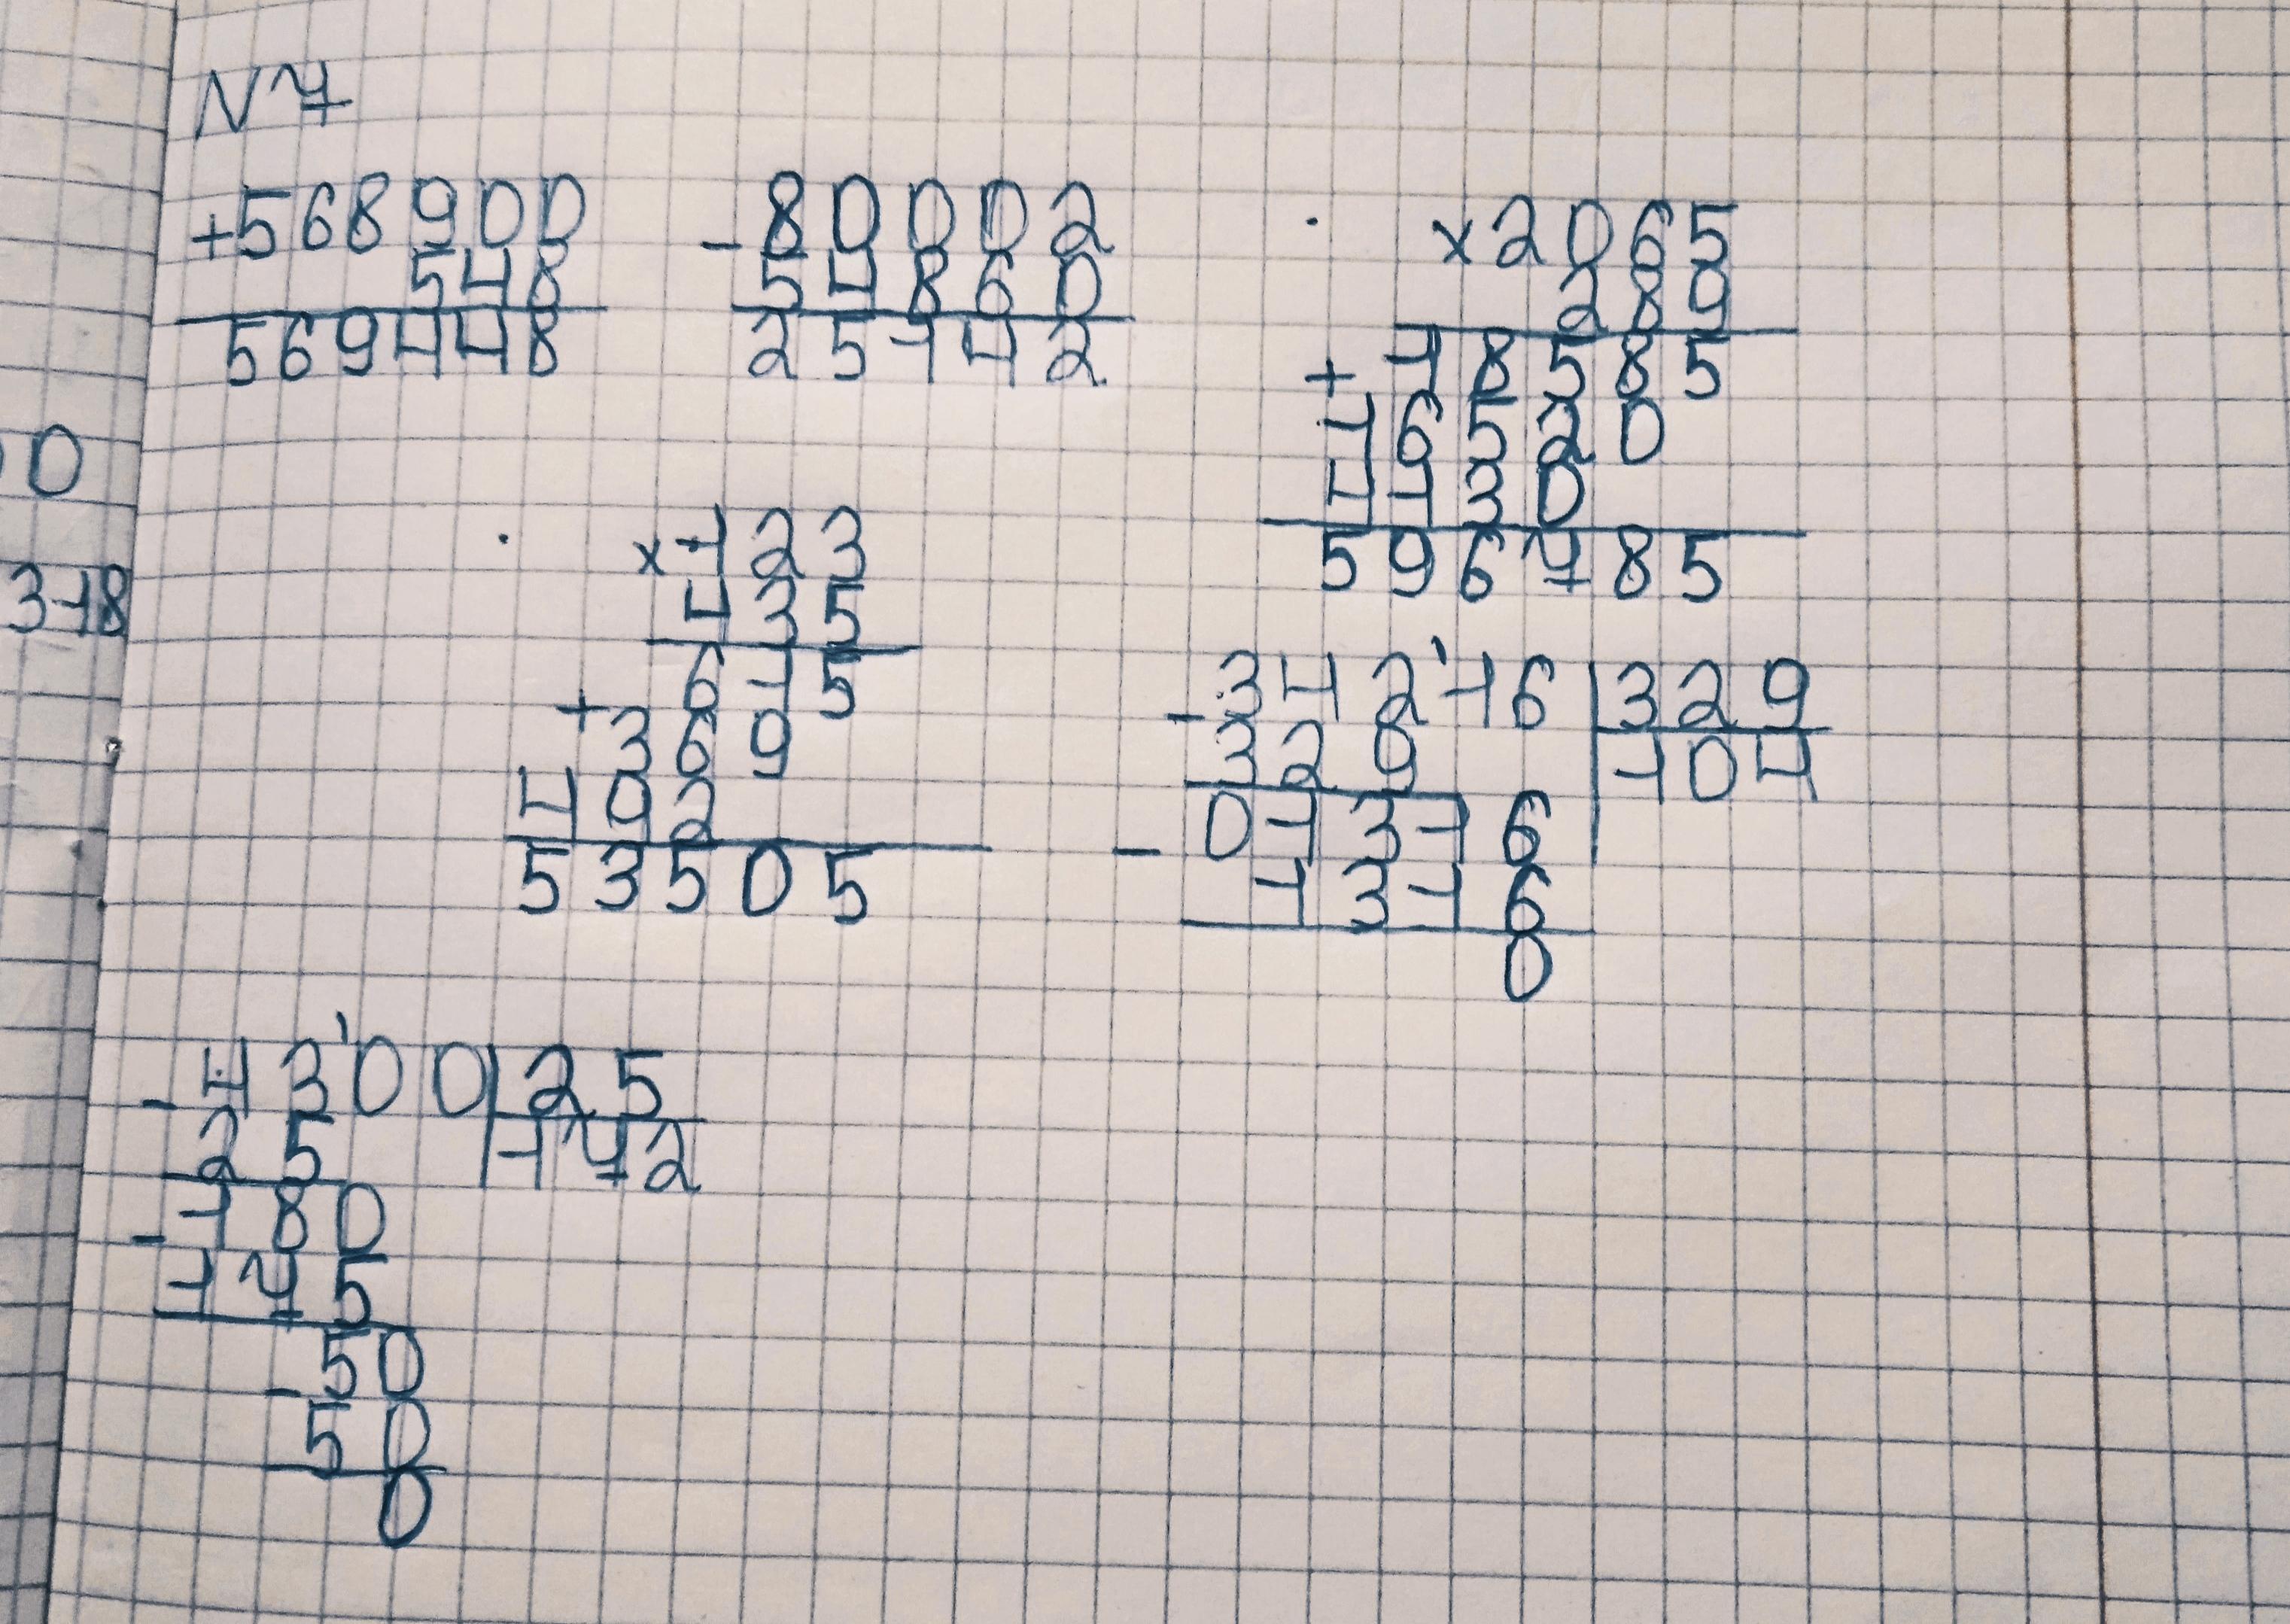 N 7
+568900
548
569448
-80002
54860
25142
×2065
289
+18585
16520
4130
596785
0
318
×123
435
615
+369
492
53505
-342'16 329
329 104
-01316
1316
0
-43'00 25
25 172
-180
175
-50
50
0